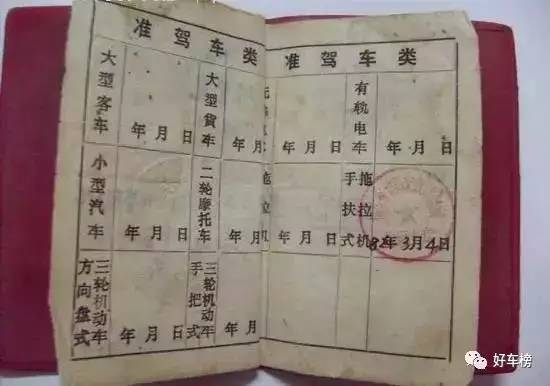 准驾车类
大型客车
年月日
大型貨车
年月
小型汽车
年月日
二轮摩托车
年月
方向盘式
三轮机动车
年月日
手把式
三轮机动车
年月
准驾车类
年月日
有轨电车
年月日
拖拉机
年月日
手扶式
拖拉机
82年3月4日
好车榜